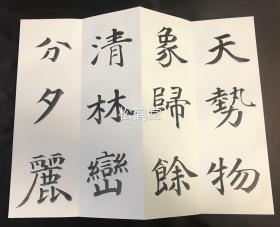 天勢物
象歸餘
清林巒
分夕麗